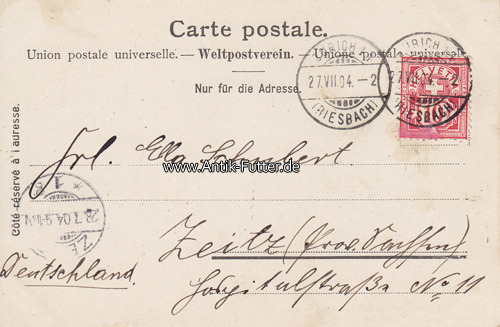 Carte postale.
Union postale universelle. — Weltpostverein. — Unione postale universale
Nur für die Adresse.
Côté réservé à l'adresse.
ZÜRICH
27.VII.04.–2
(RIESBACH)
ZÜRICH
27.VII.04.–2
(RIESBACH)
HELVETIA
Frl. Ella Schubert
www.Antik-Futter.de
Zeitz (Prov. Sachsen)
Hospitalstraße No 11
Deutschland.
* 1